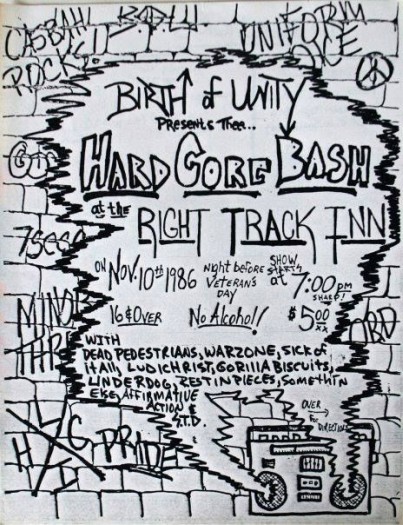 UNIFORM
CASBAH
ROCKS!
BIRTH of UNITY
PRESENTS THEE...
HARD CORE BASH
at the
RIGHT TRACK INN
ON NOV. 10th 1986 night before VETERAN'S DAY SHOW STARTS at 7:00 pm SHARP!
16 & OVER No Alcohol! $5.00
WITH
DEAD PEDESTRIANS, WARZONE, SICK of
it All, LUDICHRIST, GORILLA BISCUITS,
UNDERDOG, REST IN PIECES, SOMETHIN
ELSE, AFFIRMATIVE
ACTION &
S.T.D.
7 SECO
MINOR
THR
PRIDE
OVER
for
DIRECTIONS